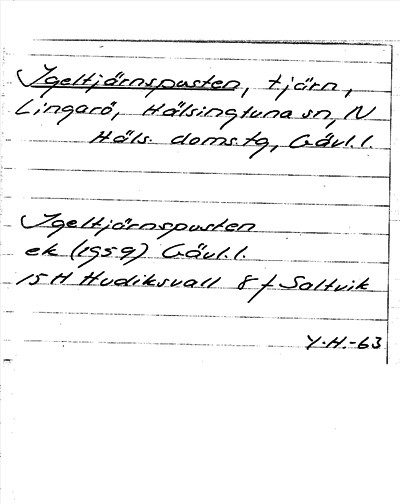 Igeltjärnspusten, tjärn,
Lingarö, Hälsingtuna sn, N
Häls. doms.tg, Gävl.l.
Igeltjärnspusten
ek (1959) Gävl.l.
15 H Hudiksvall 8 f Saltvik
Y.H.-63